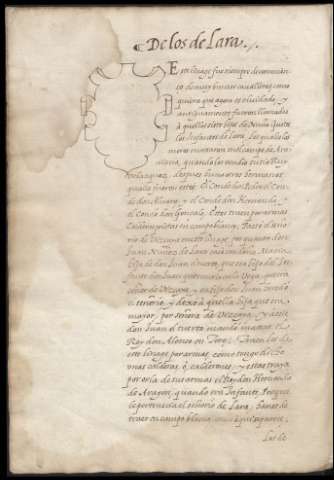 De los de Lara.
Este linage fue siempre de comienço
de muy buenos cavalleros como
quiera que agora es olvidado, y
antiguamente fueron llamados
à quellos siete hijos de
los Infantes de Lara, los quales los
moros mataron en el campo de
quando los vendio su tio Ruy
Velazquez, despues huvo otros hermanos
quales fueron estos. El Conde don Pedro, el Con-
de don Alvaro, y el Conde don Hernando, y
el Conde don Gonçalo. Estos trayan por armas
calderas prietas en campo blanco.
de Vizcaya en este linage, por quanto don
Juan Nuñez de Lara caso con doña Maria
hija de don Juan el tuerto, que era hijo del In-
fante don Juan que murio en la Vega, que era
señor de Vizcaya, y este don Juan heredo
el señorio, y dexò à quella hija que era
mayor, por señora de Vizcaya, y a este
don Juan el tuerto mando matar el
Rey don Alonso en Toro. Tienen los de
este linage por armas, como tengo dicho
unas calderas, ò calderones, y estas traya
por orla de sus armas el Rey don Hernando
de Aragon, quando era Infante, porque
le pertenecia el señorio de Lara, hanse de
traer en campo blanco,
Los de